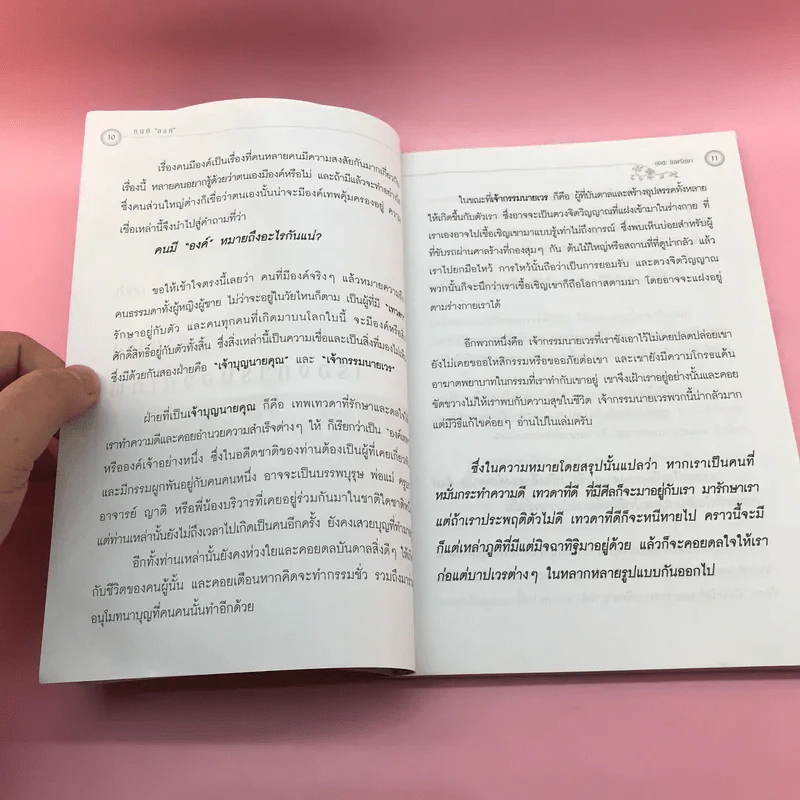 10 คนมี "องค์"
เรื่องคนมีองค์เป็นเรื่องที่คนหลายคนมีความสงสัยกันมากเกี่ยวกับ
เรื่องนี้ หลายคนอยากรู้ด้วยว่าตนเองมีองค์หรือไม่ และถ้ามีแล้วจะทำอย่างไร
ซึ่งคนส่วนใหญ่ต่างก็เชื่อว่าตนเองนั้นน่าจะมีองค์เทพคุ้มครองอยู่ ความ
เชื่อเหล่านี้จึงนำไปสู่คำถามที่ว่า
คนมี "องค์" หมายถึงอะไรกันแน่?
ขอให้เข้าใจตรงนี้เลยว่า คนที่มีองค์จริงๆ แล้วหมายความถึง
คนธรรมดาทั้งผู้หญิงผู้ชาย ไม่ว่าจะอยู่ในวัยไหนก็ตาม เป็นผู้ที่มี
รักษาอยู่กับตัว และคนทุกคนที่เกิดมาบนโลกใบนี้ จะมีองค์หรือสิ่ง
ศักดิ์สิทธิ์อยู่กับตัวทั้งสิ้น ซึ่งสิ่งเหล่านี้เป็นความเชื่อและเป็นสิ่งที่มองไม่เห็น
ซึ่งมีด้วยกันสองฝ่ายคือ "เจ้าบุญนายคุณ" และ "เจ้ากรรมนายเวร"
ฝ่ายที่เป็นเจ้าบุญนายคุณ ก็คือ เทพเทวดาที่รักษาและดลใจให้
เราทำความดีและคอยอำนวยความสำเร็จต่างๆ ให้ ก็เรียกว่าเป็น
หรือองค์เจ้าอย่างหนึ่ง ซึ่งในอดีตชาติของท่านต้องเป็นผู้ที่เคยเกี่ยว
และมีกรรมผูกพันอยู่กับคนคนหนึ่ง อาจจะเป็นบรรพบุรุษ พ่อแม่ ครู
อาจารย์ ญาติ หรือพี่น้องบริวารที่เคยอยู่ร่วมกันมาในชาติใดชาติหนึ่ง
แต่ท่านเหล่านั้นยังไม่ถึงเวลาไปเกิดเป็นคนอีกครั้ง ยังคงเสวยบุญที่ทำมา
อีกทั้งท่านเหล่านั้นยังคงห่วงใยและคอยดลบันดาลสิ่งดีๆ ให้
กับชีวิตของคนผู้นั้น และคอยเตือนหากคิดจะทำกรรมชั่ว รวมถึงมา
อนุโมทนาบุญที่คนคนนั้นทำอีกด้วย
11
ในขณะที่เจ้ากรรมนายเวร ก็คือ ผู้ที่บันดาลและสร้างอุปสรรคทั้งหลาย
ให้เกิดขึ้นกับตัวเรา ซึ่งอาจจะเป็นดวงจิตวิญญาณที่แฝงเข้ามาในร่างกาย ที่
เราเองอาจไปเชื้อเชิญเขามาแบบรู้เท่าไม่ถึงการณ์ ซึ่งพบเห็นบ่อยสำหรับผู้
ที่ขับรถผ่านศาลร้างที่กองสุมๆ กัน ต้นไม้ใหญ่หรือสถานที่ที่ดูน่ากลัว แล้ว
เราไปยกมือไหว้ การไหว้นั้นถือว่าเป็นการยอมรับ และดวงจิตวิญญาณ
พวกนั้นก็จะนึกว่าเราเชื้อเชิญเขาก็ถือโอกาสตามมา โดยอาจจะแฝงอยู่
ตามร่างกายเราได้
อีกพวกหนึ่งคือ เจ้ากรรมนายเวรที่เราขังเอาไว้ไม่เคยปลดปล่อยเขา
ยังไม่เคยขออโหสิกรรมหรือขออภัยต่อเขา และเขายังมีความโกรธแค้น
อาฆาตพยาบาทในกรรมที่เราทำกับเขาอยู่ เขาจึงเฝ้าเราอยู่อย่างนั้นและคอย
ขัดขวางไม่ให้เราพบกับความสุขในชีวิต เจ้ากรรมนายเวรพวกนี้น่ากลัวมาก
แต่มีวิธีแก้ไขค่อยๆ อ่านไปในเล่มครับ
ซึ่งในความหมายโดยสรุปนั้นแปลว่า หากเราเป็นคนที่
หมั่นกระทำความดี เทวดาที่ดี ที่มีศีลก็จะมาอยู่กับเรา มารักษาเรา
แต่ถ้าเราประพฤติตัวไม่ดี เทวดาที่ดีก็จะหนีหายไป คราวนี้จะมี
ก็แต่เหล่าภูติที่มีแต่มิจฉาทิฐิมาอยู่ด้วย แล้วก็จะคอยดลใจให้เรา
ก่อแต่บาปเวรต่างๆ ในหลากหลายรูปแบบกันออกไป